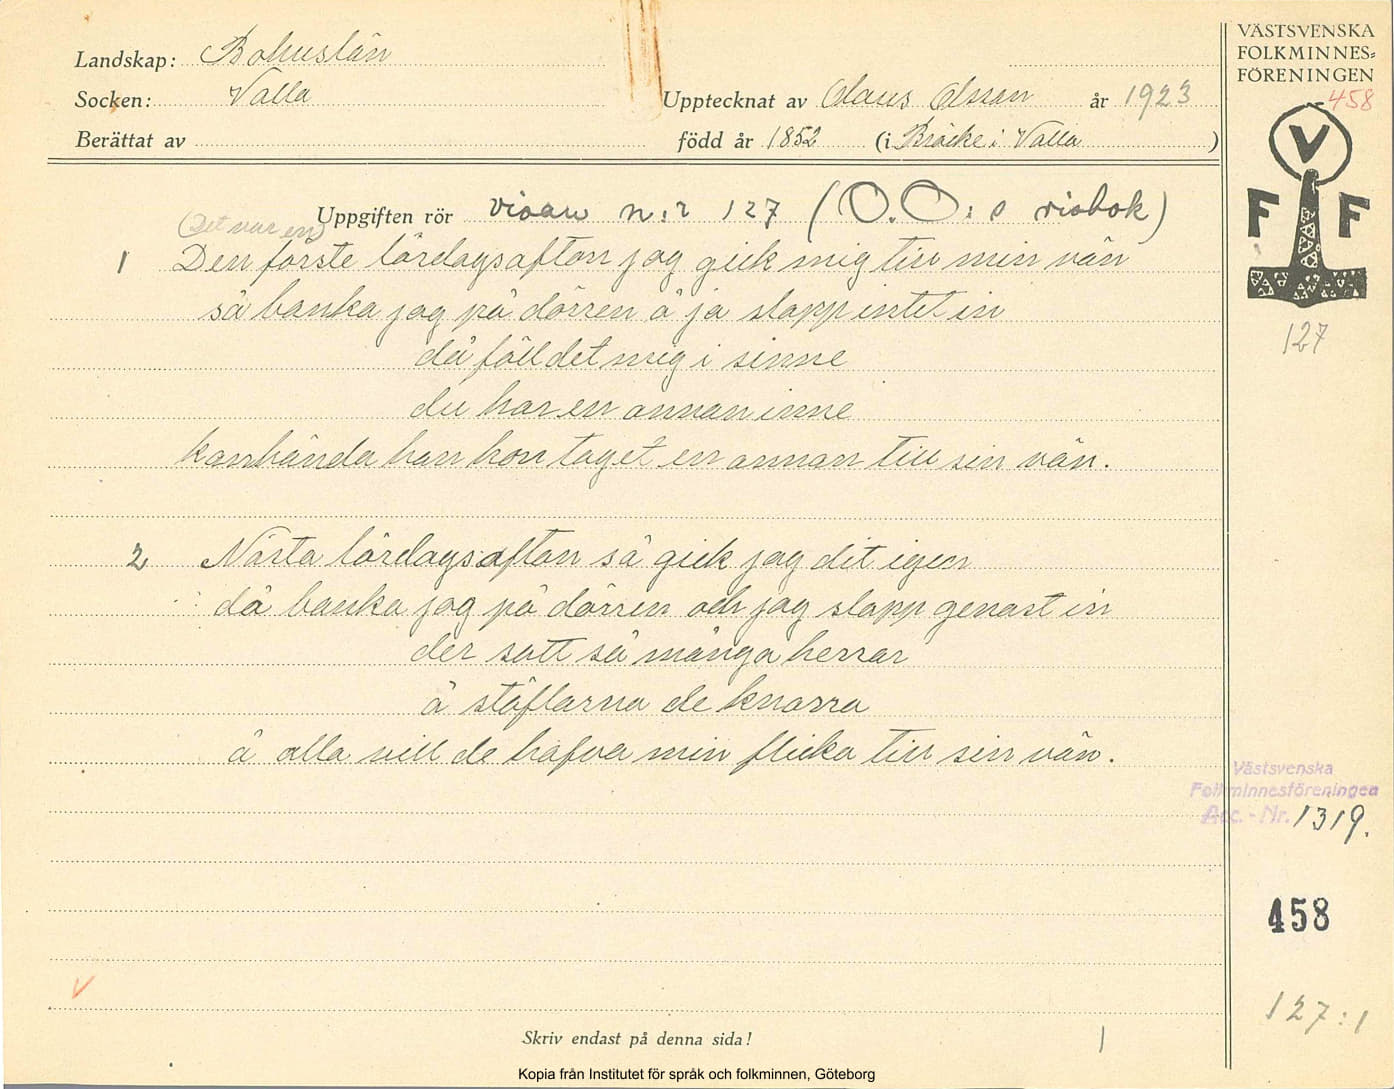 Landskap: Bohuslän
Socken: Valla
Upptecknat av Olaus Olsson år 1923
Berättat av
född år 1852 (i Bräcke i Valla)
VÄSTSVENSKA
FOLKMINNES=
FÖRENINGEN
458
V
F F
127
Uppgiften rör visan n:r 127 (O.O:s visbok)
(Det var en)
1 Den förste lördagsafton jag gick mig till min vän
så banka jag på dörren å ja slapp intet in
då föll det mig i sinne
du har en annan inne
kanhända han hon taget en annan till sin vän.
2 Nästa lördagsafton så gick jag dit igen
då banka jag på dörren och jag slapp genast in
der satt så många herrar
å stöflarna de knarra
å alla vill de hafva min flicka till sin vän.
Västsvenska
Folkminnesföreningen
Acc.-Nr. 1319.
458
127:1
V
Skriv endast på denna sida!
1
Kopia från Institutet för språk och folkminnen, Göteborg